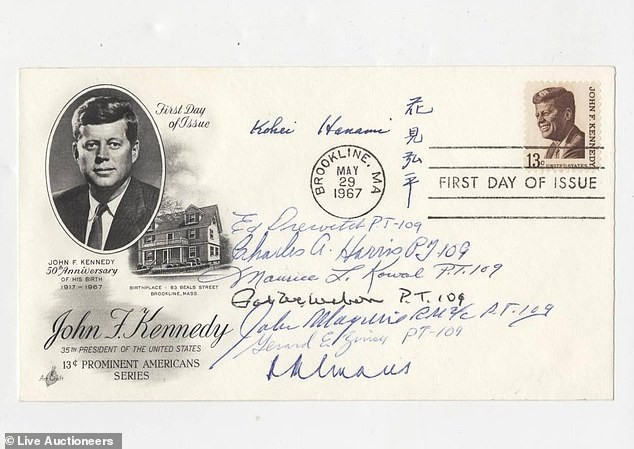 First Day
of Issue
Kohei Hanami
花見弘平
JOHN F. KENNEDY
13c
UNITED STATES
BROOKLINE, MA
MAY
29
1967
FIRST DAY OF ISSUE
JOHN F. KENNEDY
50th Anniversary
OF HIS BIRTH
1917 - 1967
BIRTHPLACE - 83 BEALS STREET
BROOKLINE, MASS.
Ed Drewitch PT-109
Charles A. Harris PT 109
Maurice L. Kowal P.T. 109
P.T. 109
John Maguire RM2/c P.T-109
Gerard E. Zinser PT-109
John F. Kennedy
35TH PRESIDENT OF THE UNITED STATES
13¢ PROMINENT AMERICANS
SERIES
ArtCraft
© Live Auctioneers